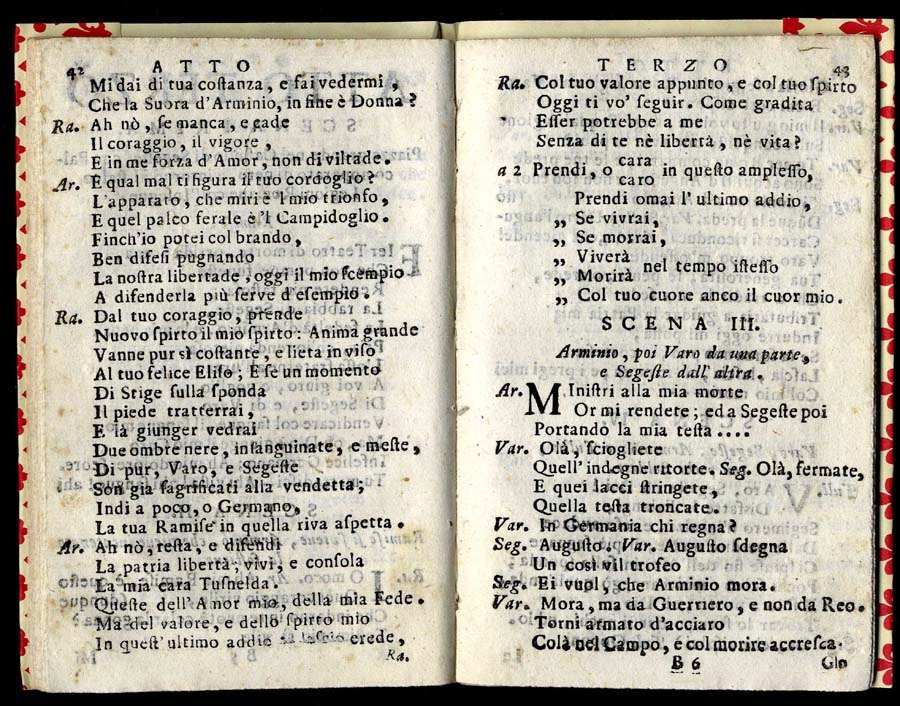 42 ATTO
Mi dai di tua coſtanza, e fai vedermi,
Che la Suora d'Arminio, in fine è Donna?
Ra. Ah nò, ſe manca, e cade
Il coraggio, il vigore,
E in me forza d'Amor, non di viltade.
Ar. E qual mal ti figura il tuo cordoglio?
L'apparato, che miri è 'l mio trionfo,
E quel palco ferale è 'l Campidoglio.
Finch'io potei col brando,
Ben difeſi pugnando
La noſtra libertade, oggi il mio ſcempio
A difenderla più ſerve d'eſempio.
Ra. Dal tuo coraggio, prende
Nuovo ſpirto il mio ſpirto: Anima grande
Vanne pur sì coſtante, e lieta in viſo
Al tuo felice Eliſo; E ſe un momento
Di Stige ſulla ſponda
Il piede tratterrai,
E là giunger vedrai
Due ombre nere, inſanguinate, e meſte,
Di pur, Varo, e Segeſte
Son già ſagrificati alla vendetta;
Indi a poco, o Germano,
La tua Ramiſe in quella riva aſpetta.
Ar. Ah nò, reſta, e difendi
La patria libertà; vivi, e conſola
La mia cara Tuſnelda.
Queſte dell'Amor mio, della mia Fede.
Ma del valore, e dello ſpirto mio
In queſt' ultimo addio ti laſcio erede,
Ra.
TERZO 43
Ra. Col tuo valore appunto, e col tuo ſpirto
Oggi ti vo' ſeguir. Come gradita
Eſſer potrebbe a me
Senza di te nè libertà, nè vita?
a 2 Prendi, o cara caro in queſto ampleſſo,
Prendi omai l'ultimo addio,
„ Se vivrai,
„ Se morrai,
„ Viverà
„ Morirà nel tempo iſteſſo
„ Col tuo cuore anco il cuor mio.
SCENA III.
Arminio, poi Varo da una parte,
e Segeſte dall' altra.
Ar. MIniſtri alla mia morte
Or mi rendete; ed a Segeſte poi
Portando la mia teſta....
Var. Olà, ſciogliete
Quell' indegne ritorte. Seg. Olà, fermate,
E quei lacci ſtringete,
Quella teſta troncate.
Var. In Germania chi regna?
Seg. Auguſto. Var. Auguſto ſdegna
Un così vil trofeo
Seg. Ei vuol, che Arminio mora.
Var. Mora, ma da Guerriero, e non da Reo.
Torni armato d'acciaro
Colà nel Campo, e col morire accreſca.
B 6 Glo